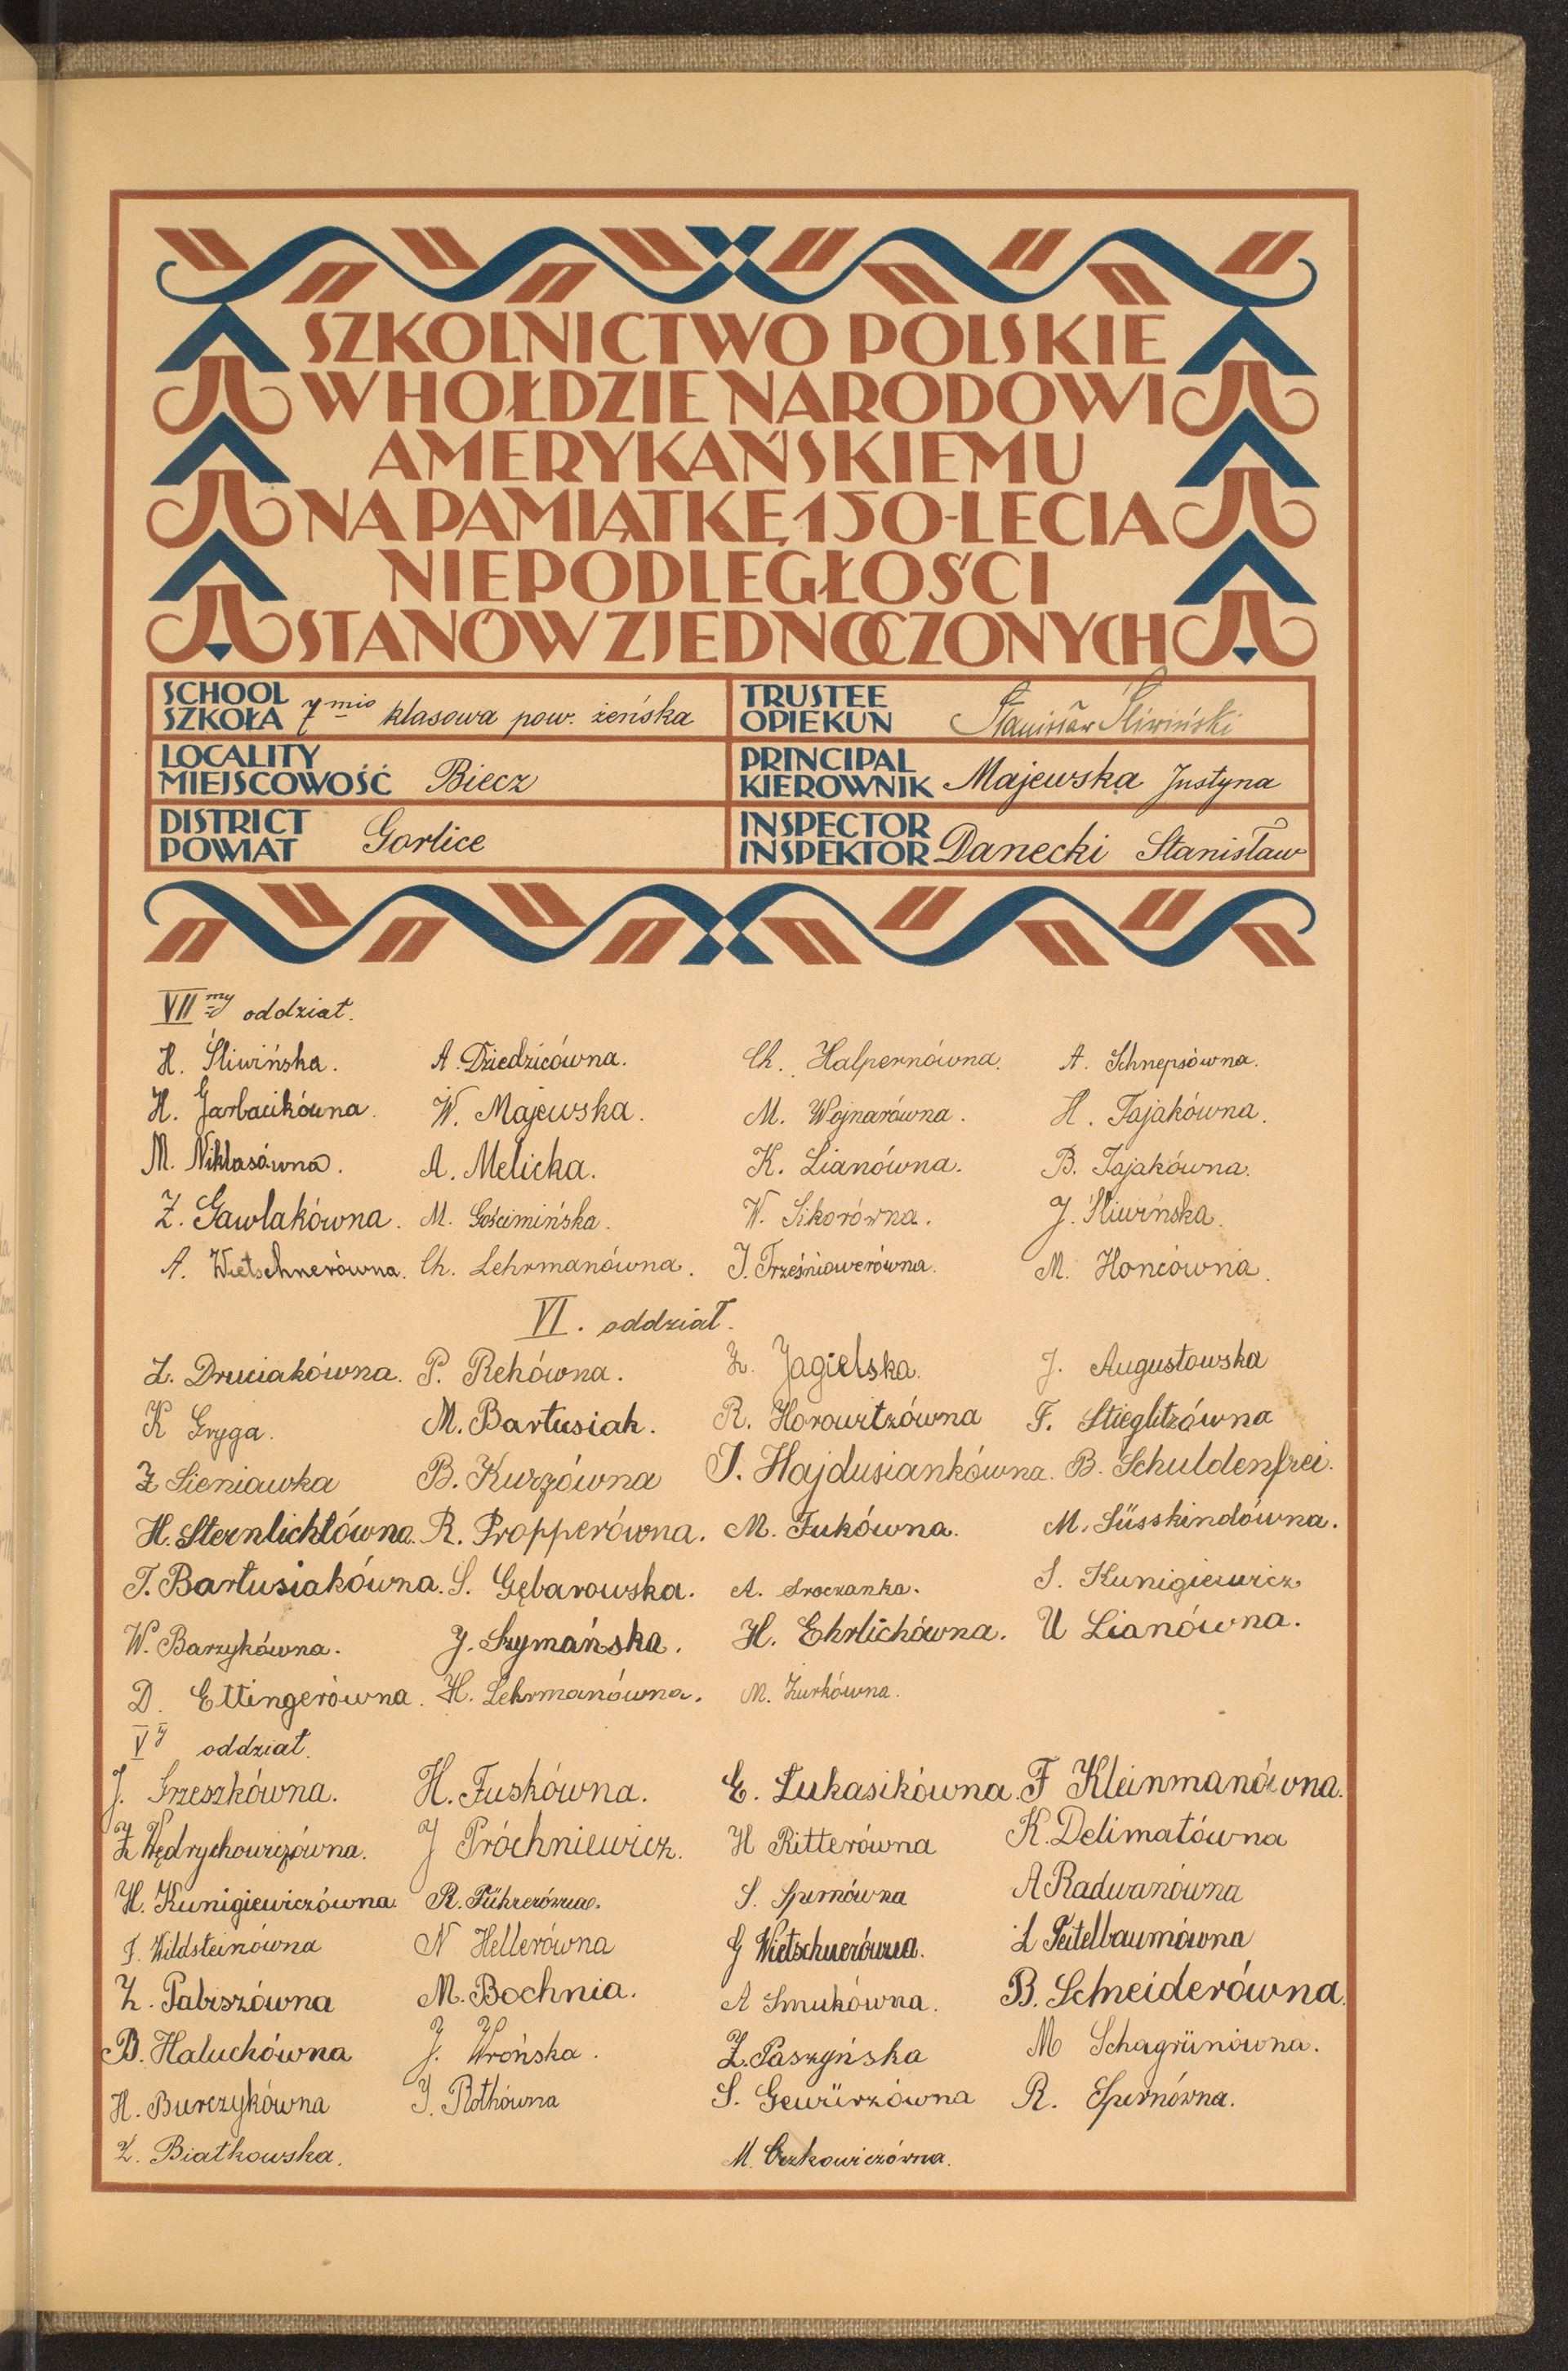 SZKOLNICTWO POLSKIE
W HOŁDZIE NARODOWI
AMERYKAŃSKIEMU
NA PAMIĄTKĘ 150-LECIA
NIEPODLEGŁOŚCI
STANÓW ZJEDNOCZONYCH
SCHOOL SZKOŁA 7mio klasowa pow. żeńska
TRUSTEE OPIEKUN Stanisław Śliwiński
LOCALITY MIEJSCOWOŚĆ Biecz
PRINCIPAL KIEROWNIK Majewska Justyna
DISTRICT POWIAT Gorlice
INSPECTOR INSPEKTOR Danecki Stanisław
VII my oddział.
H. Śliwińska. A. Dziedzicówna. Ch. Halpernówna. A. Schnepsówna.
H. Garbacikówna. W. Majewska. M. Wojnarówna. H. Tajakówna.
M. Niklasówna. A. Melicka. K. Lianówna. B. Tajakówna.
Z. Gawlakówna. M. Gościmińska. W. Sikorówna. J. Śliwińska.
A. Wietschnerówna. Ch. Lehrmanówna. J. Trześniowerówna. M. Honcówna.
VI. oddział.
Z. Druciakówna. P. Rehówna. Z. Jagielska. J. Augustowska
K Gryga. M. Bartusiak. R. Horowitzówna F. Stieglitzówna
Z Sieniawka B. Kurzówna J. Hajdusiankówna. B. Schuldenfrei.
H. Sternlichtówna. R. Propperówna. M. Fukówna. M. Süsskindówna.
T. Bartusiakówna. S. Gębarowska. A. Sroczanka. S. Kunigiewicz
W. Barzykówna. J. Szymańska. H. Ehrlichówna. U Lianówna.
D. Ettingerówna. H. Lehrmanówna. M. Żurkówna.
V y oddział.
J. Grzeszkówna. H. Fuskówna. E. Łukasikówna. F Kleinmanówna.
Z Wędrychowiczówna. J Próchniewicz. H Ritterówna K. Delimatówna
H. Kunigiewiczówna. R. Führerówna. S. Spirnówna A Radwanówna
F. Wildsteinówna N Hellerówna G Wietschnerówna. L Teitelbaumówna
Z. Pabiszówna M. Bochnia. A Smukówna. B. Schneiderówna.
B. Haluchówna J. Wrońska. Z. Paszyńska M Schagrünówna.
H. Burczykówna J. Rothówna S. Gewürzówna R. Spirnówna.
Z. Białkowska. M.